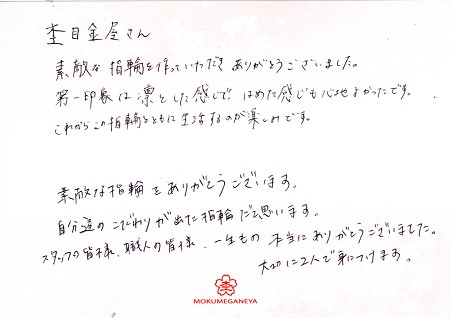 杢目金屋さん
素敵な指輪を作っていただき ありがとうございました。
第一印象は凛とした感じで はめた感じも心地よかったです。
これからこの指輪とともに生活するのが楽しみです。
素敵な指輪をありがとうございます。
自分達のこだわりが出た指輪だと思います。
スタッフの皆様、職人の皆様、一生もの 本当にありがとうございました。
大切に2人で身につけます。
MOKUMEGANEYA